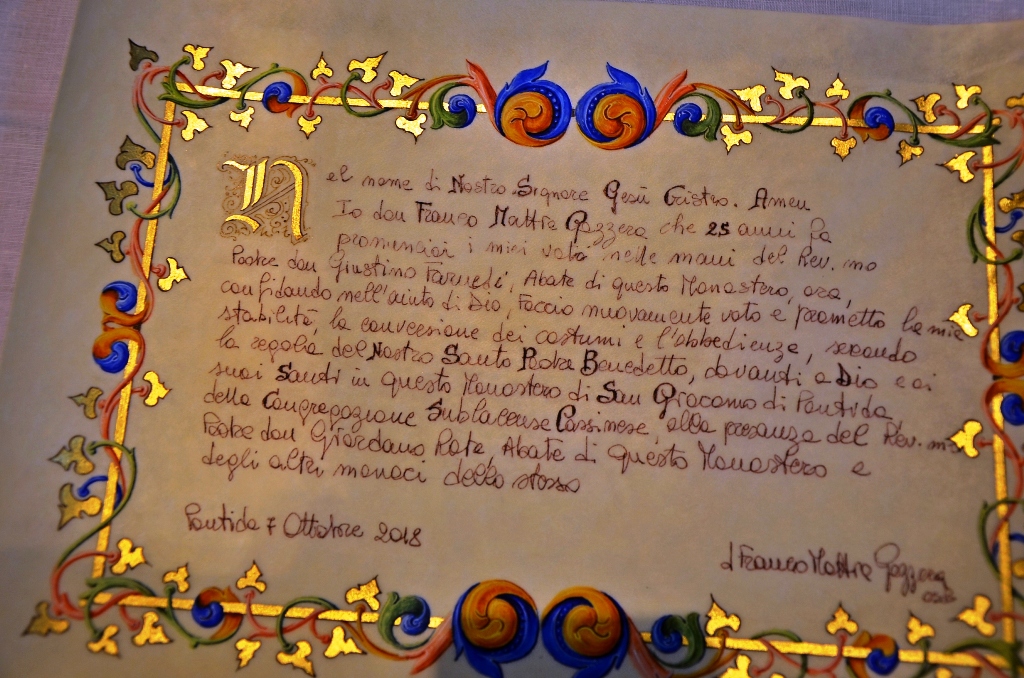 Nel nome di Nostro Signore Gesù Cristo. Amen
Io don Franco Mattia Gazzera che 25 anni fa
pronunciai i miei voti nelle mani del Rev.mo
Padre don Giustino Farnedi, Abate di questo Monastero, ora,
confidando nell'aiuto di Dio, faccio nuovamente voto e prometto la mia
stabilità, la conversione dei costumi e l'obbedienza, secondo
la regola del Nostro Santo Padre Benedetto, davanti a Dio e ai
suoi Santi in questo Monastero di San Giacomo di Pontida
della Congregazione Sublacense Cassinese, alla presenza del Rev.m
Padre don Giordano Rota, Abate di questo Monastero e
degli altri monaci dello stesso
Pontida 7 Ottobre 2018
d Franco Mattia Gazzera